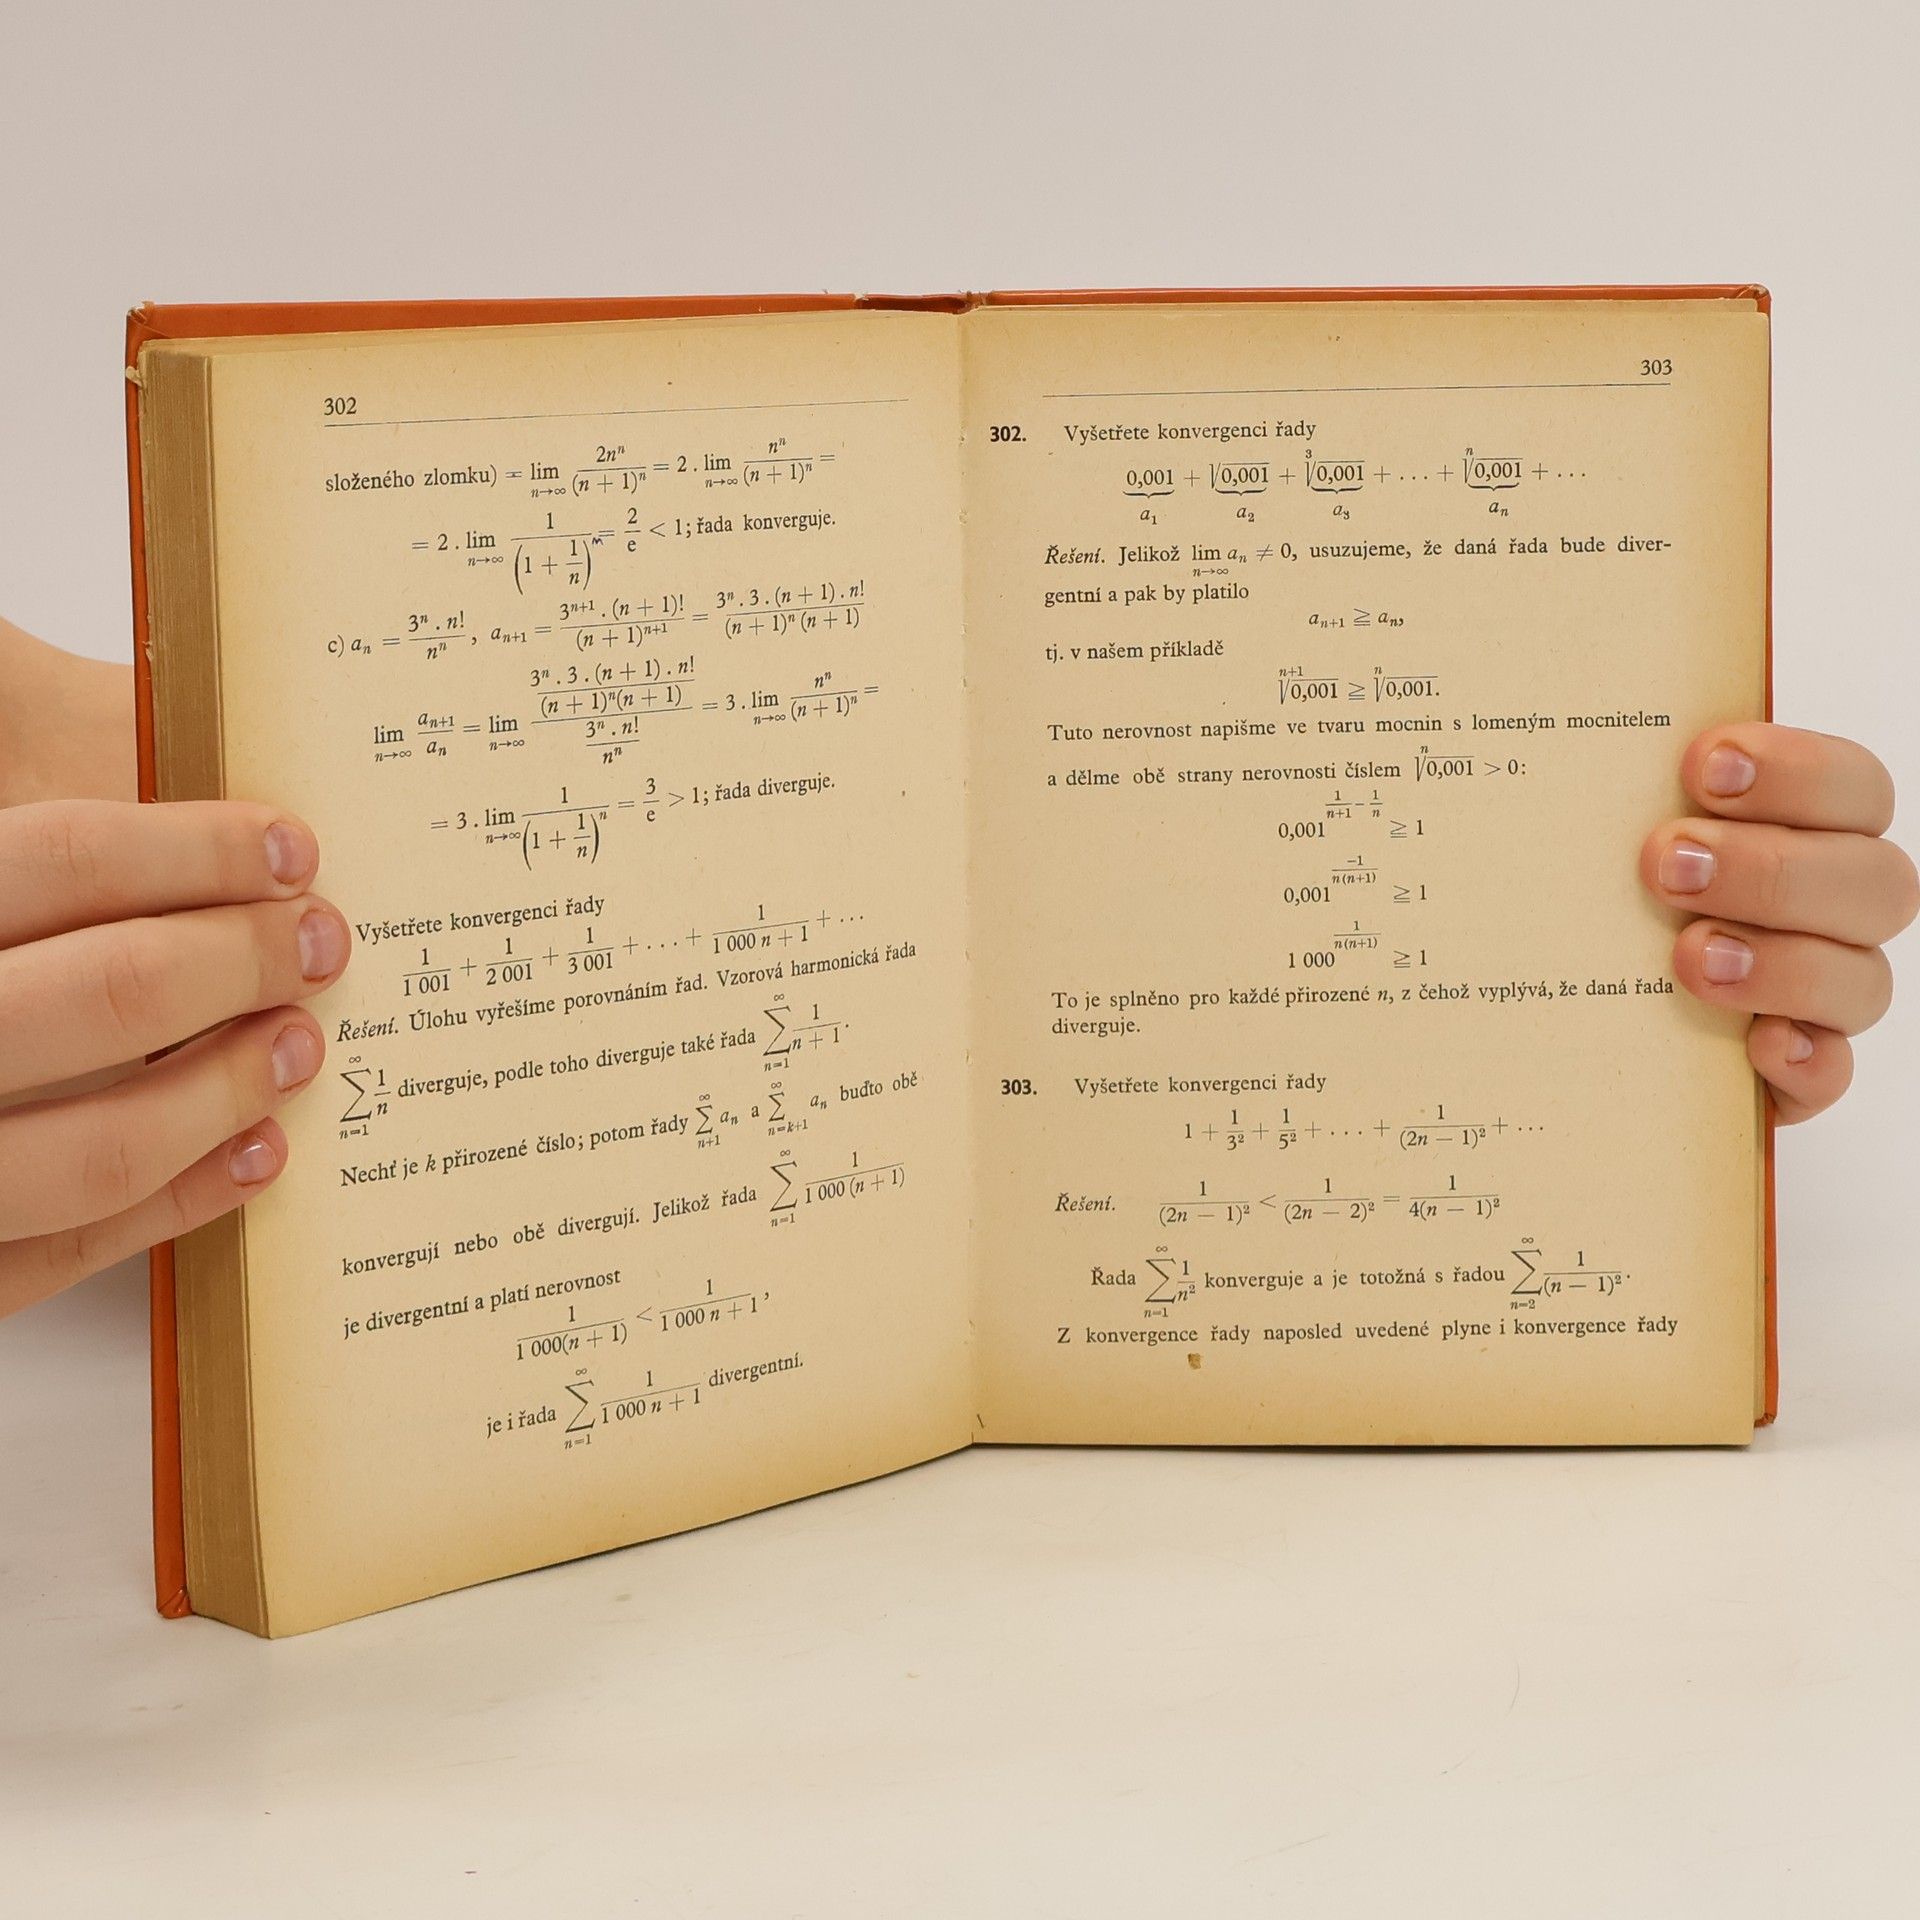 302
složeného zlomku) = lim_{n→∞} 2nⁿ/(n + 1)ⁿ = 2 . lim_{n→∞} nⁿ/(n + 1)ⁿ =
= 2 . lim_{n→∞} 1/(1 + 1/n)ⁿ = 2/e < 1; řada konverguje.
c) a_n = 3ⁿ . n!/nⁿ, a_{n+1} = 3ⁿ⁺¹ . (n + 1)!/(n + 1)ⁿ⁺¹ = 3ⁿ . 3 . (n + 1) . n!/(n + 1)ⁿ (n + 1)
lim_{n→∞} a_{n+1}/a_n = lim_{n→∞} (3ⁿ . 3 . (n + 1) . n!/(n + 1)ⁿ(n + 1))/(3ⁿ . n!/nⁿ) = 3 . lim_{n→∞} nⁿ/(n + 1)ⁿ =
= 3 . lim_{n→∞} 1/(1 + 1/n)ⁿ = 3/e > 1; řada diverguje.
Vyšetřete konvergenci řady
1/1 001 + 1/2 001 + 1/3 001 + . . . + 1/1 000 n + 1 + . . .
Řešení. Úlohu vyřešíme porovnáním řad. Vzorová harmonická řada
∑_{n=1}^{∞} 1/n diverguje, podle toho diverguje také řada ∑_{n=1}^{∞} 1/n + 1.
Nechť je k přirozené číslo; potom řady ∑_{n+1}^{∞} a_n a ∑_{n=k+1}^{∞} a_n buďto obě
konvergují nebo obě divergují. Jelikož řada ∑_{n=1}^{∞} 1/1 000 (n + 1)
je divergentní a platí nerovnost
1/1 000(n + 1) < 1/1 000 n + 1,
je i řada ∑_{n=1}^{∞} 1/1 000 n + 1 divergentní.
303
302. Vyšetřete konvergenci řady
0,001 + √0,001 + ³√0,001 + . . . + ⁿ√0,001 + . . .
a₁ a₂ a₃ a_n
Řešení. Jelikož lim_{n→∞} a_n ≠ 0, usuzujeme, že daná řada bude diver-
gentní a pak by platilo
a_{n+1} ≧ a_n,
tj. v našem příkladě
ⁿ⁺¹√0,001 ≧ ⁿ√0,001.
Tuto nerovnost napišme ve tvaru mocnin s lomeným mocnitelem
a dělme obě strany nerovnosti číslem ⁿ√0,001 > 0:
0,001^{1/n+1 − 1/n} ≧ 1
0,001^{−1/n(n+1)} ≧ 1
1 000^{1/n(n+1)} ≧ 1
To je splněno pro každé přirozené n, z čehož vyplývá, že daná řada
diverguje.
303. Vyšetřete konvergenci řady
1 + 1/3² + 1/5² + . . . + 1/(2n − 1)² + . . .
Řešení. 1/(2n − 1)² < 1/(2n − 2)² = 1/4(n − 1)²
Řada ∑_{n=1}^{∞} 1/n² konverguje a je totožná s řadou ∑_{n=2}^{∞} 1/(n − 1)².
Z konvergence řady naposled uvedené plyne i konvergence řady